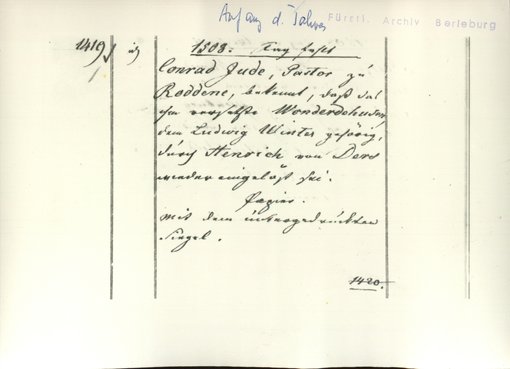 Anfang d. Jahres Fürstl. Archiv Berleburg
1419
1503. Tag fehlt
Conrad Jude, Pastor zu
Roddene, bekennt, daß das
ihm versetzte
dem Ludwig Winter gehörig,
durch Henrich von Ders
wieder eingelöst sei.
Papier.
mit dem untergedrückten
Siegel.
1420.